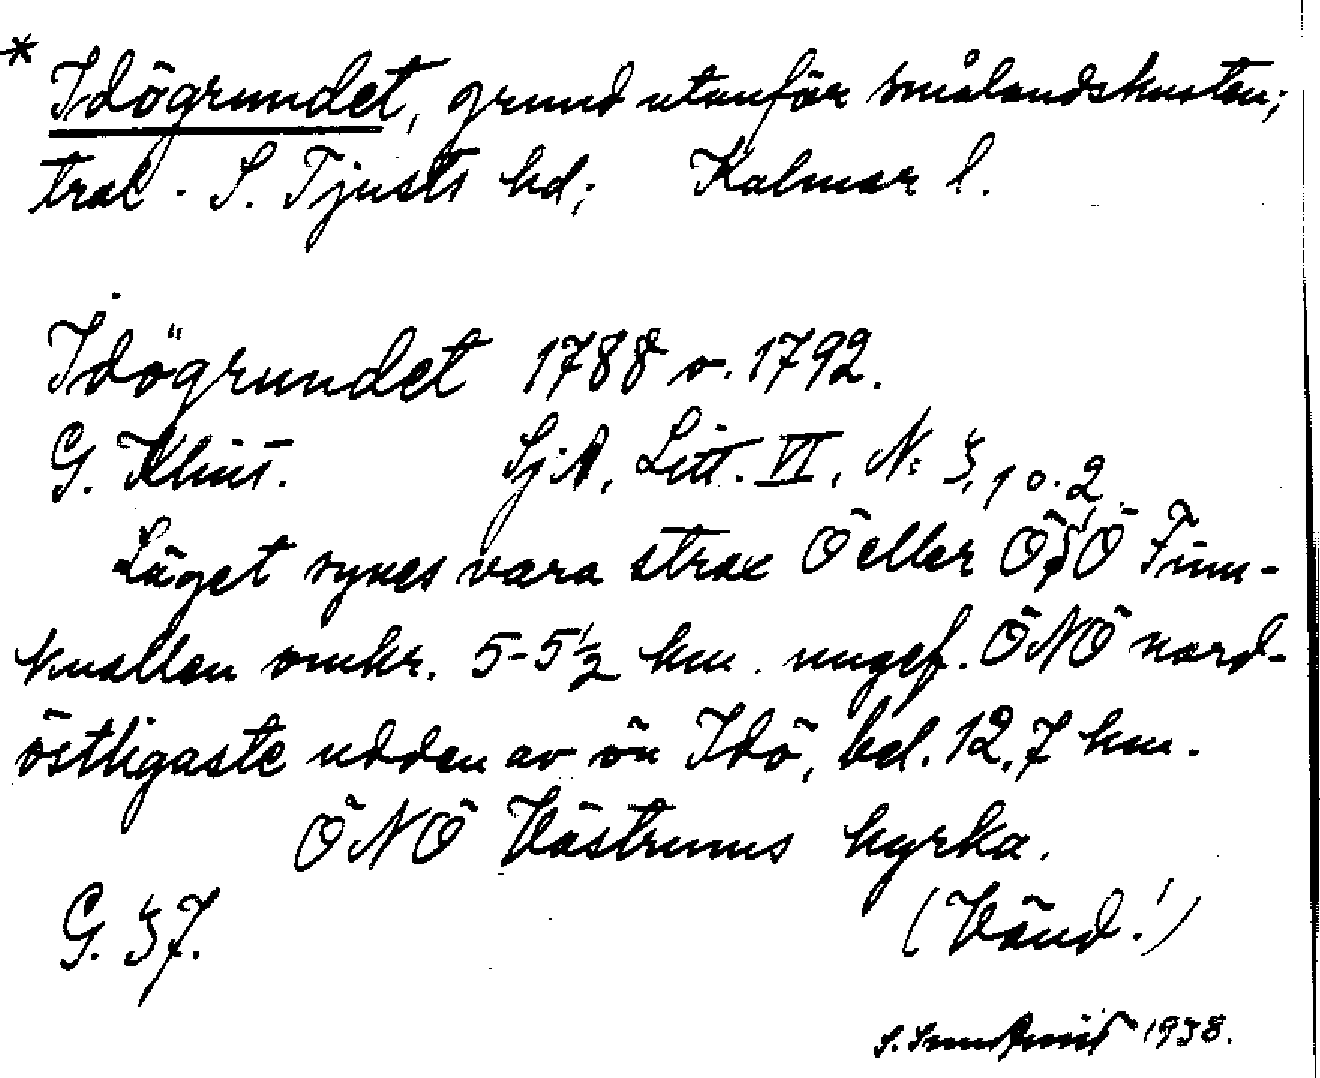 * Idögrundet, grund utanför smålandskusten;
trol. S. Tjusts hd; Kalmar l.
Idögrundet 1788 o. 1792.
G. Klint. Sj.A, Litt. VI, N: 3, 1 o. 2
Läget synes vara strax Ö eller ÖSÖ Finn-
knallen omkr. 5-5½ km. ungef. ÖNÖ nord-
östligaste udden av ön Idö, bel. 12,7 km.
ÖNÖ Västrums kyrka.
G. 37. (Vänd!)
1938.